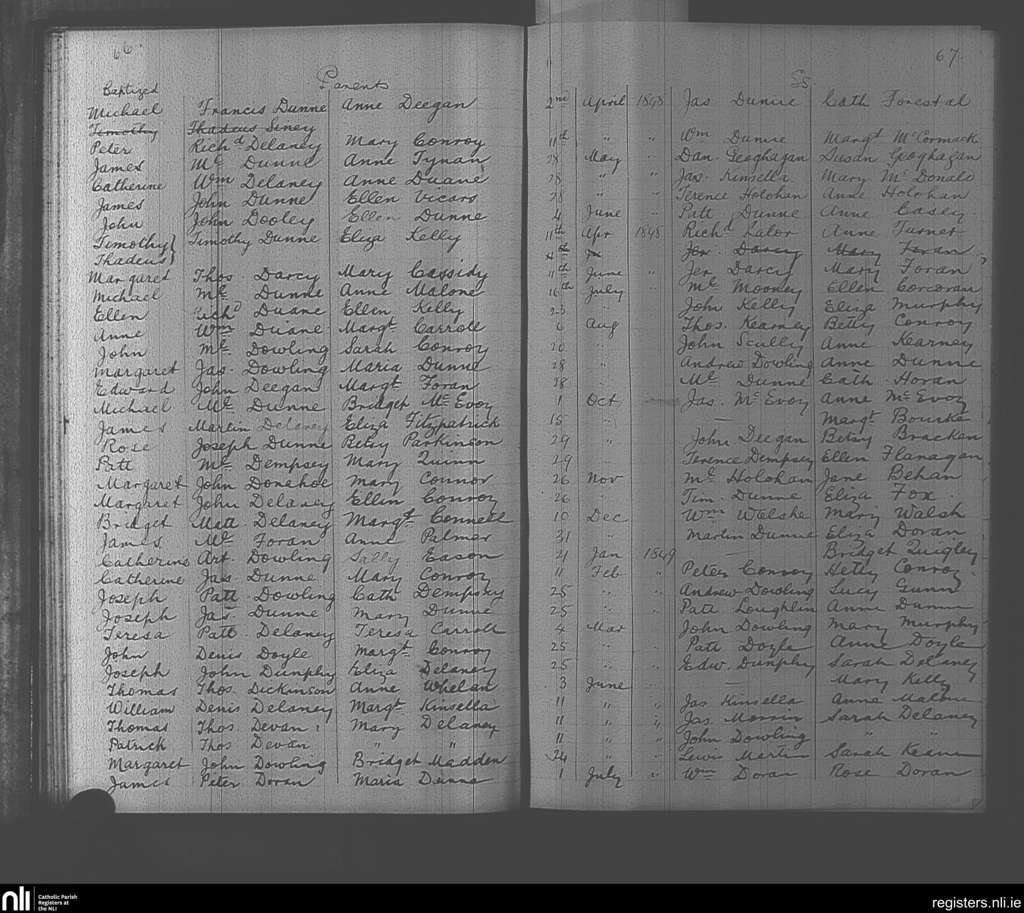 66.
Baptized Parents
Michael Francis Dunne Anne Deegan
Timothy Thadeus Siney
Peter Richd Delaney Mary Conroy
James Ml Dunne Anne Tynan
Catherine Wm Delaney Anne Duane
James John Dunne Ellen Vicars
John John Dooley Ellen Dunne
Timothy } Timothy Dunne Eliza Kelly
Thadeus }
Margaret Thos. Darcy Mary Cassidy
Michael Ml. Dunne Anne Malone
Ellen Richd Duane Ellen Kelly
Anne Wm Duane Margt. Carroll
John Ml. Dowling Sarah Conroy
Margaret Jas. Dowling Maria Dunne
Edward John Deegan Margt. Foran
Michael Ml. Dunne Bridget McEvoy
James Martin Delaney Eliza Fitzpatrick
Rose Joseph Dunne Betsy Parkinson
Patt Ml. Dempsey Mary Quinn
Margaret John Donahoe Mary Connor
Margaret John Delaney Ellen Conroy
Bridget Matt. Delaney Margt. Connell
James Ml. Foran Anne Palmer
Catherine Art. Dowling Sally Eason
Catherine Jas. Dunne Mary Conroy
Joseph Patt. Dowling Cath Dempsey
Joseph Jas. Dunne Mary Dunne
Teresa Patt. Delaney Teresa Carroll
John Denis Doyle Margt. Conroy
Joseph John Dunphy Eliza Delaney
Thomas Thos. Dickinson Anne Whelan
William Denis Delaney Margt. Kinsella
Thomas Thos. Devan Mary Delaney
Patrick Thos Devan " "
Margaret John Dowling Bridget Madden
James Peter Doran Maria Dunne
67.
2nd April 1848 Jas Dunne Cath Forestal
11th " " Wm Dunne Margt McCormack
28 May " Dan. Geoghagan Susan Geoghagan
28 " " Jas. Kinsella Mary McDonald
28 " " Terence Holohan Anne Holohan
4 June " Patt Dunne Anne Casey
11th Apr 1848 Richd Lalor Anne Turner
Jer. Darcy Mary Foran
11th June " Jer Darcy Mary Foran
16th July " Ml. Mooney Ellen Corcoran
23 " John Kelly Eliza Murphy
6 Aug Thos. Kearney Betty Conroy
20 " John Scully Anne Kearney
28 " Andrew Dowling Anne Dunne
28 " Ml. Dunne Cath. Horan
1 Oct Jas. McEvoy Anne McEvoy
15 " — Margt Bourke
29 " John Deegan Betsy Bracken
29 " Terence Dempsey Ellen Flanagan
26 Nov Ml Holohan Jane Behan
26 " Tim. Dunne Eliza Fox.
10 Dec Wm Walshe Mary Walsh
31 " Martin Dunne Eliza Doran
21 Jan 1849 — Bridget Quigley
11 Feb " Peter Conroy Hetty Conroy.
25 " " Andrew Dowling Lucy Gunn
25 " " Patt Loughlin Anne Dunne
4 Mar " John Dowling Mary Murphy
25 " " Patt Doyle Anne Doyle
25 " " Edw. Dunphy Sarah Delaney
3 June " — Mary Kelly
11 " " Jas Kinsella Anne Malone
11 " " Jas. Morrin Sarah Delaney
11 " " John Dowling " "
24 " " Lewis Martin Sarah Keane
1 July " Wm Doran Rose Doran
nli Catholic Parish Registers at the NLI
registers.nli.ie